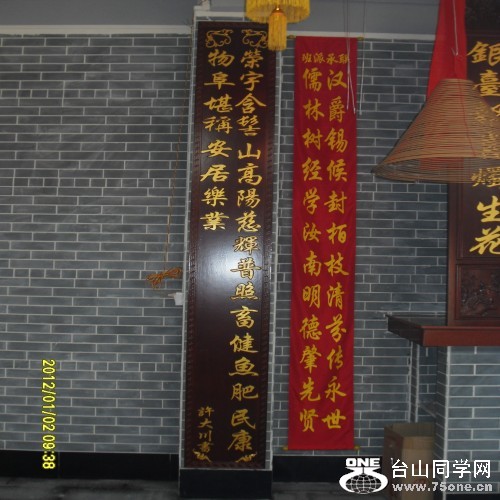 銀臺
生花
联承派班
汉爵锡候封栢枝清芬传永世
儒林树经学汝南明德肇先贤
榮宇含髻山高陽慈輝普照畜健鱼肥民康
物阜堪稱安居樂業
許大川書
2012/01/02 09:38
ONE
台山同学网
www.75one.cn